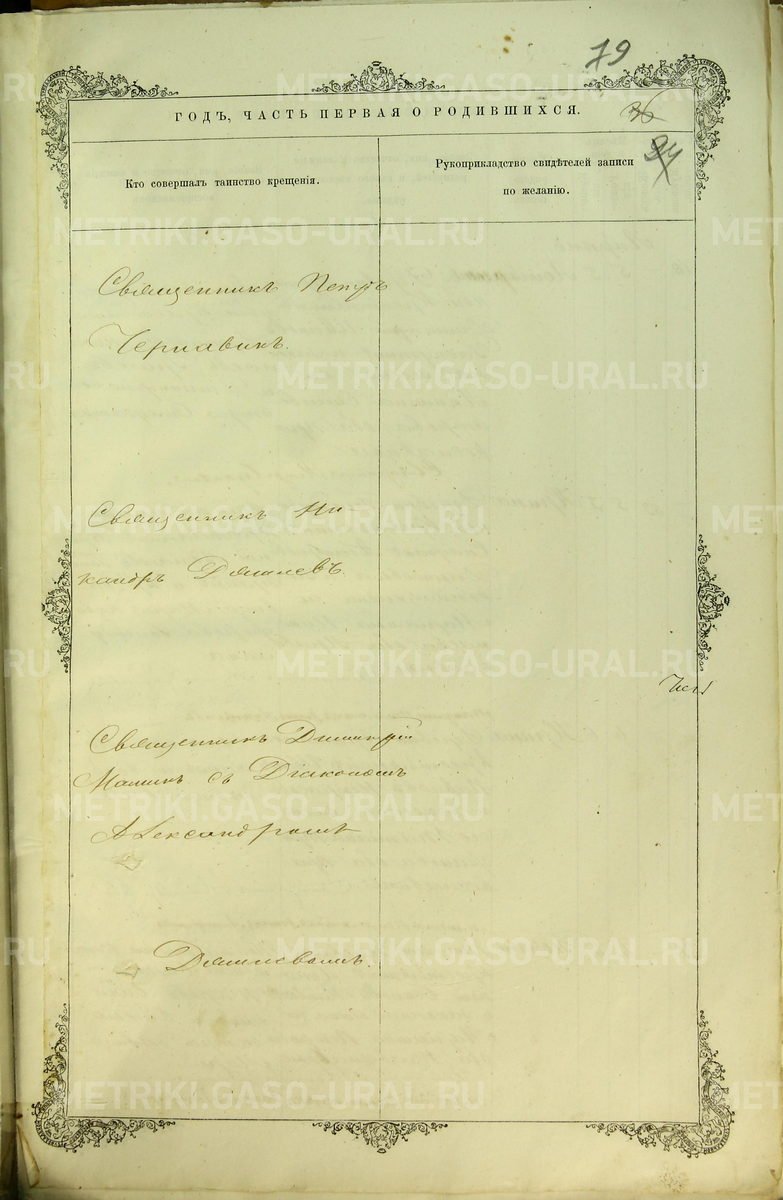 79
ГОДЪ, ЧАСТЬ ПЕРВАЯ О РОДИВШИХСЯ.
Кто совершалъ таинство крещенія.
Рукоприкладство свидѣтелей записи
по желанію.
Священникъ Петръ
Чернавинъ.
Священникъ Ни
кандръ
Священникъ Димитрій
Маминъ съ Діакономъ
Александромъ
METRIKI.GASO-URAL.RU